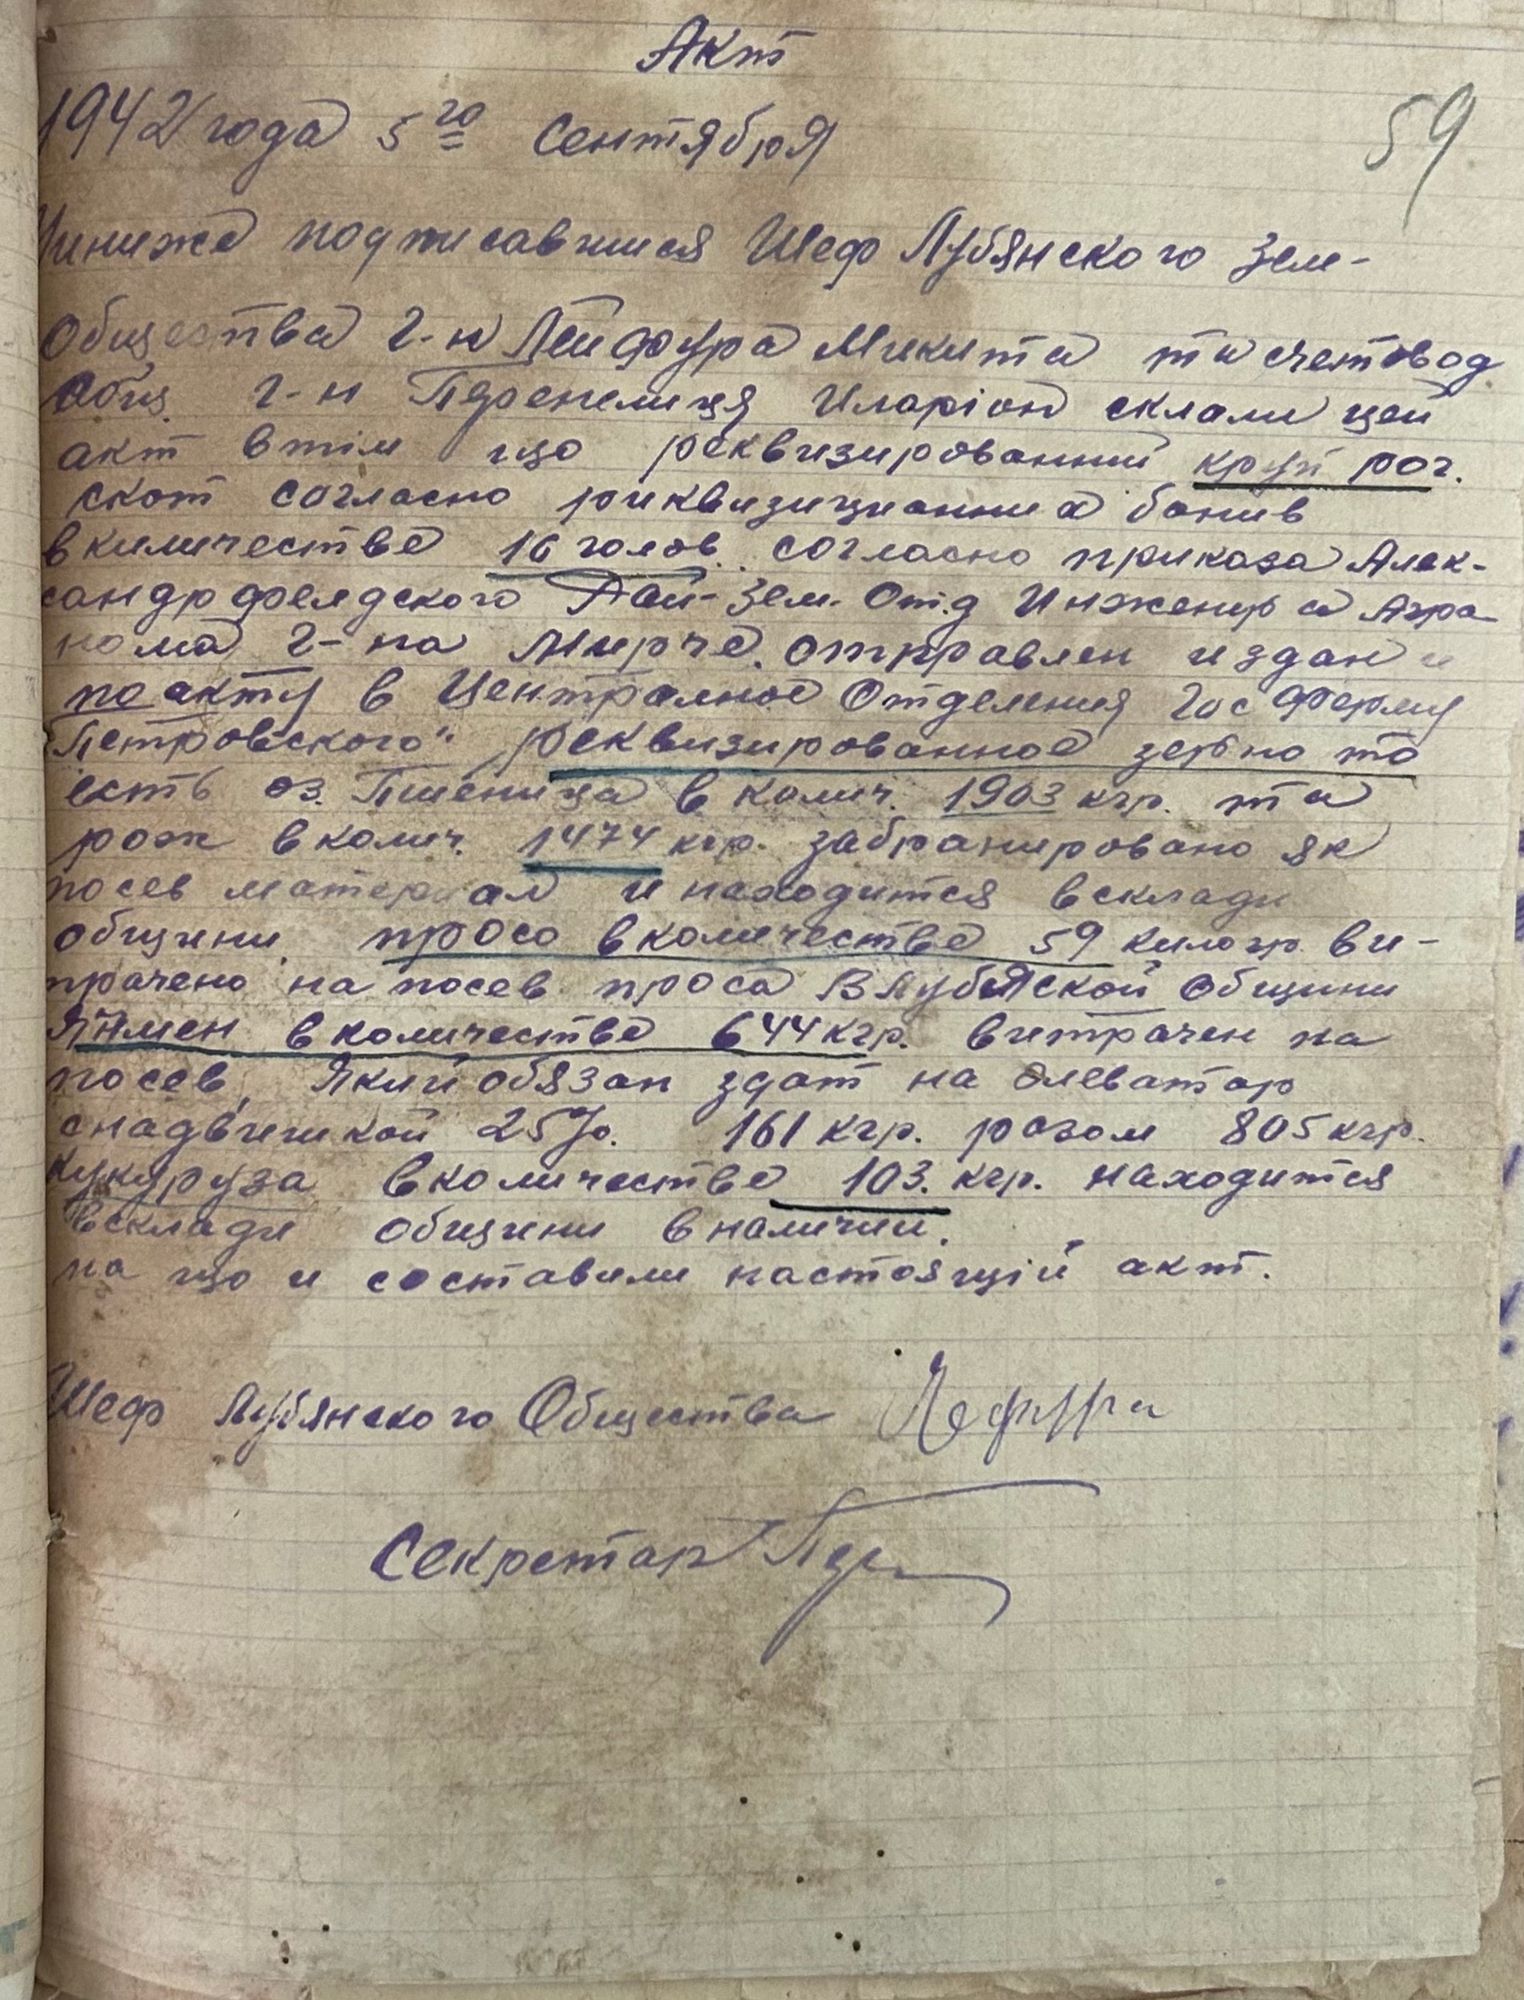 Акт
1942 года 5го Сентября
59
подписавшися Шеф Лубянского Зем-
Общества г-н Лейфура Микита та счетовод
Общ. г-н Перепелиця Иларіон склали цей
акт в тім що реквизированний круп рог.
скот согласно риквизиционних бонив
в киличестве 16 голов. согласно приказа Алек-
сандрофелдского Рай-Зем-Отд Инженира Агра-
нома г-на Мирче. отправлен и здан и
по акту в Централное Отделения Гос Фермы
Петровского" реквизированное зерно то
есть оз. Пшеница в колич. 1903 кгр. та
рож в колич. 1474 кгр. забранировано як
посев материал и находится в склади
общини. просо в количестве 59 килогр. ви-
трачено на посев проса В Лубяской Общини
Ячмен в количестве 644 кгр. витрачен на
посев, Який обязан здат на Элеватор
с надв'ишкой 25%. 161 кгр. розом 805 кгр.
Кукуруза в количестве 103. кгр. находится
в склади общини в наличии.
на що и составили настоящій акт.
Шеф Лубянского Общества Лефура
Секретар